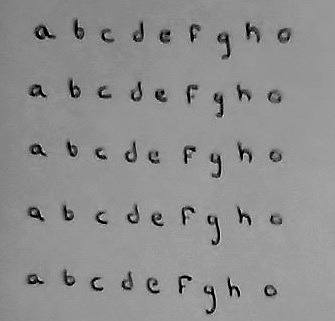 a b c d e f g h o
a b c d e f g h o
a b c d e f g h o
a b c d e f g h o
a b c d e f g h o